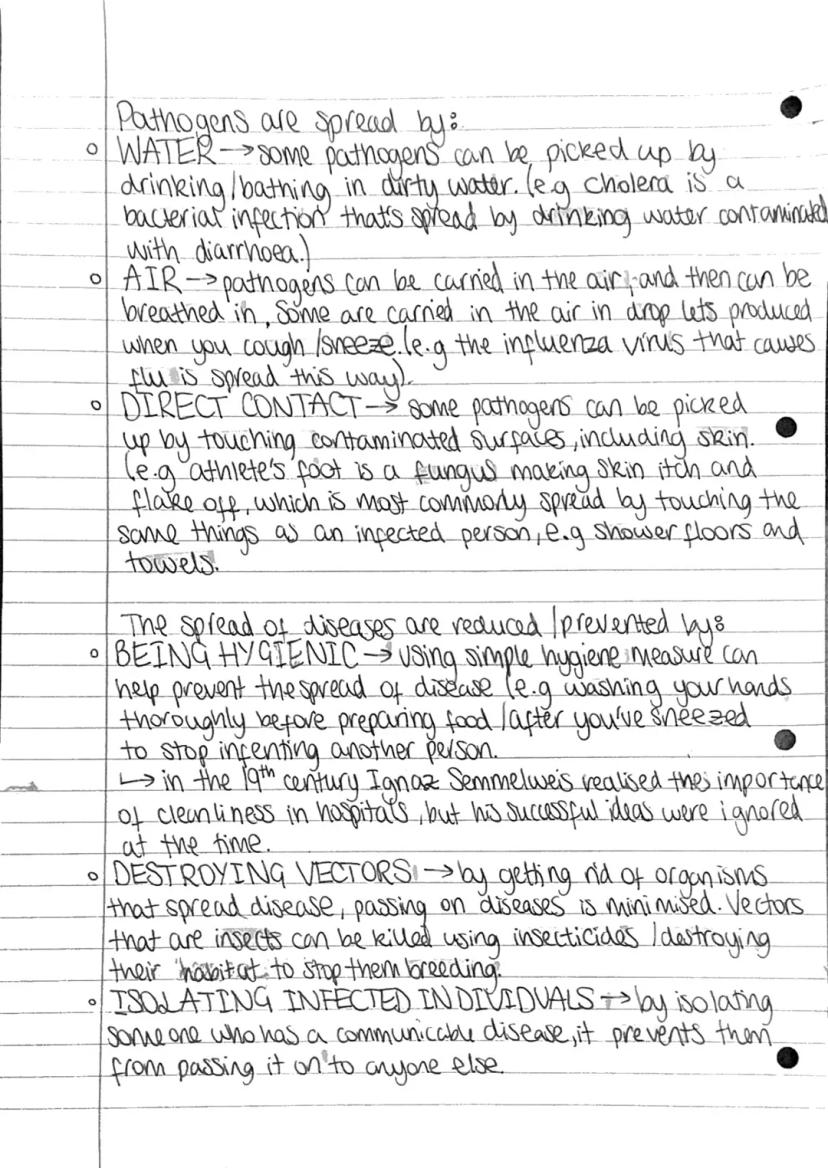 Pathogens are spread by:
○ WATER → some pathogens can be picked up by
drinking/bathing in dirty water. (e.g cholera is a
bacterial infection that's spread by drinking water contaminated
with diarrhoea.)
○ AIR → pathogens can be carried in the air, and then can be
breathed in. Some are carried in the air in drop lets produced
when you cough/sneeze. (e.g the influenza virus that causes
flu is spread this way).
○ DIRECT CONTACT → some pathogens can be picked
up by touching contaminated surfaces, including skin.
(e.g athlete's foot is a fungus making skin itch and
flake off, which is most commonly spread by touching the
same things as an infected person, e.g shower floors and
towels.
The spread of diseases are reduced/prevented by:
○ BEING HYGIENIC → using simple hygiene measure can
help prevent the spread of disease (e.g washing your hands
thoroughly before preparing food/after you've sneezed
to stop infenting another person.
↳ in the 19th century Ignaz Semmelweis realised the importance
of cleanliness in hospitals, but his successful ideas were ignored
at the time.
○ DESTROYING VECTORS → by getting rid of organisms
that spread disease, passing on diseases is minimised. Vectors
that are insects can be killed using insecticides/destroying
their habitat to stop them breeding.
○ ISOLATING INFECTED INDIVIDUALS → by isolating
someone who has a communicable disease, it prevents them
from passing it on to anyone else.